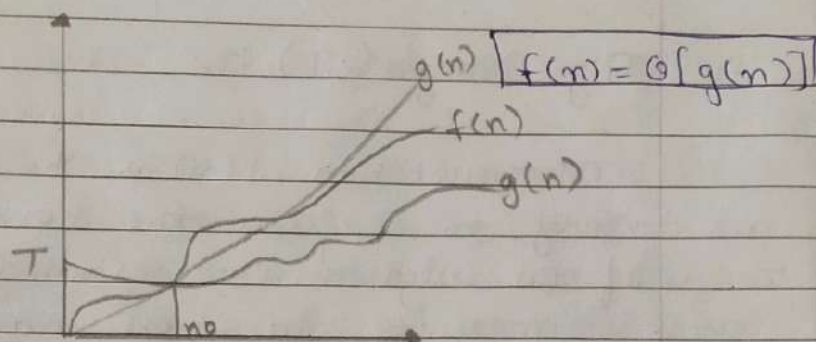 g(n) f(n) = Θ[g(n)]
f(n)
g(n)
T
n0